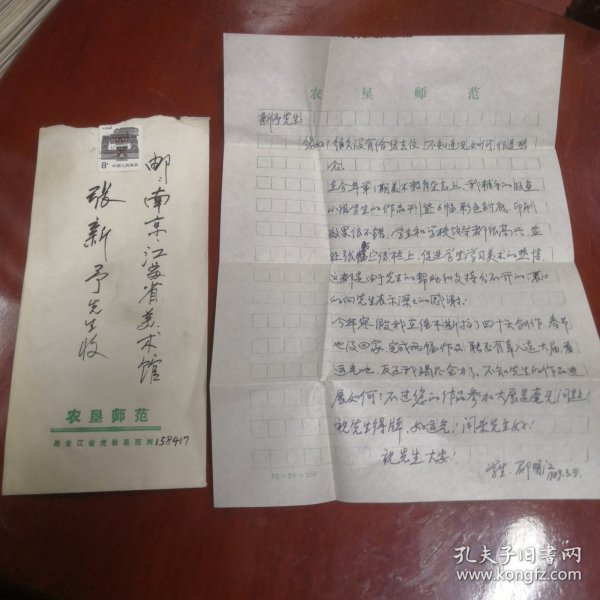 8分
中国人民邮政
邮·南京·江苏省美术馆
张新予先生收
农垦师范
黑龙江省虎林县西岗158417
农垦师范
新予先生:
您好!很久没有给您去信,不知近况如何?很是想
念。
是今年第1期美术教育杂志上,
小组学生的作品刊登了临彩色封底,印刷
效果很不错,学生和学校领导都很高兴,並
促进学生学习美术的热情,
这都是由于先生的帮助和支持分不开的,
的向先生表示深深的感谢。
今年寒假我
搞了四十天创作,春节
也没回家,完成两幅作品,能否有幸入选大展,看
运气吧,反正我竭尽全力了。不知先生的作品进
展如何?不过您的作品参加大展是毫无问题,
祝先生得牌,好运气!问朱先生好!
祝先生大安!
学生:邵明江
15×20=300
孔夫子旧书网
www.kongfz.com